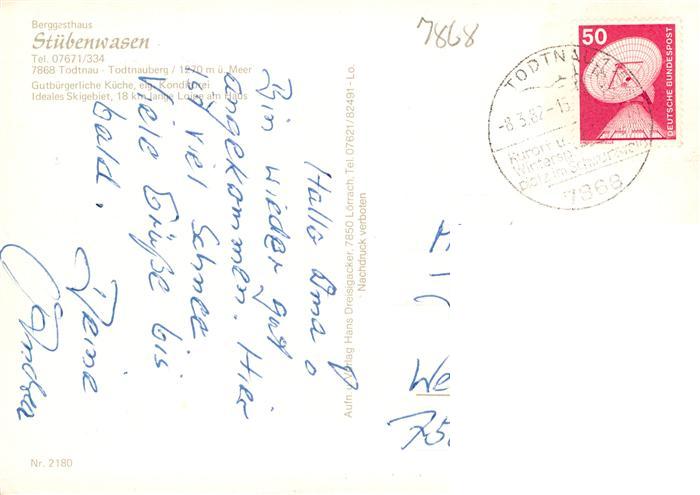 Berggasthaus
Stübenwasen
Tel. 07671/334
7868 Todtnau - Todtnauberg / 1270 m ü. Meer
Gutbürgerliche Küche, eig. Konditorei
Ideales Skigebiet, 18 km lange Loipe am Haus
7868
50
DEUTSCHE BUNDESPOST
TODTNAU 1
-8.3.82-15
Kurort u.
Wintersp.
platz im Schwarzwald
7868
Hallo Oma!
Bin wieder gut
angekommen. Hier
ist viel Schnee.
Viele Grüße bis
bald.
Deine
Aufn. u. Verlag Hans Dreisigacker, 7850 Lörrach, Tel. 07621/82491-Lo.
Nachdruck verboten
We
75
Nr. 2180